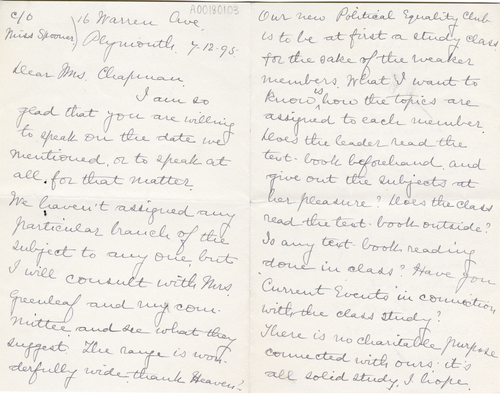 A00180103
c/o 16 Warren Ave.
Miss Spooner) Plymouth 7-12-95.
Dear Mrs. Chapman.
I am so
glad that you are willing
to speak on the date we
mentioned, or to speak at
all, for that matter.
We haven't assigned any
particular branch of the
subject to any one, but
I will consult with Mrs.
Greenleaf and my com-
mittee and see what they
suggest. The range is won-
derfully wide thank Heaven!
Our new Political Equality Club
is to be at first a study class
for the sake of the weaker
members. What I want to
know is how the topics are
assigned to each member.
Does the leader read the
text-book beforehand, and
give out the subjects at
her pleasure? Does the class
read the text-book outside?
Is any text-book reading
done in class? Have you
Current Events in connection
with the class study?
There is no charitable purpose
connected with ours. it's
all solid study, I hope.